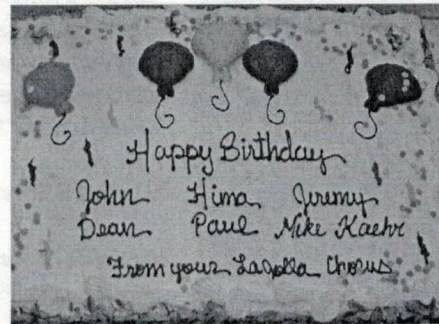 Happy Birthday
John Hima Jeremy
Dean Paul Mike Kaehr
From your LaJolla Chorus